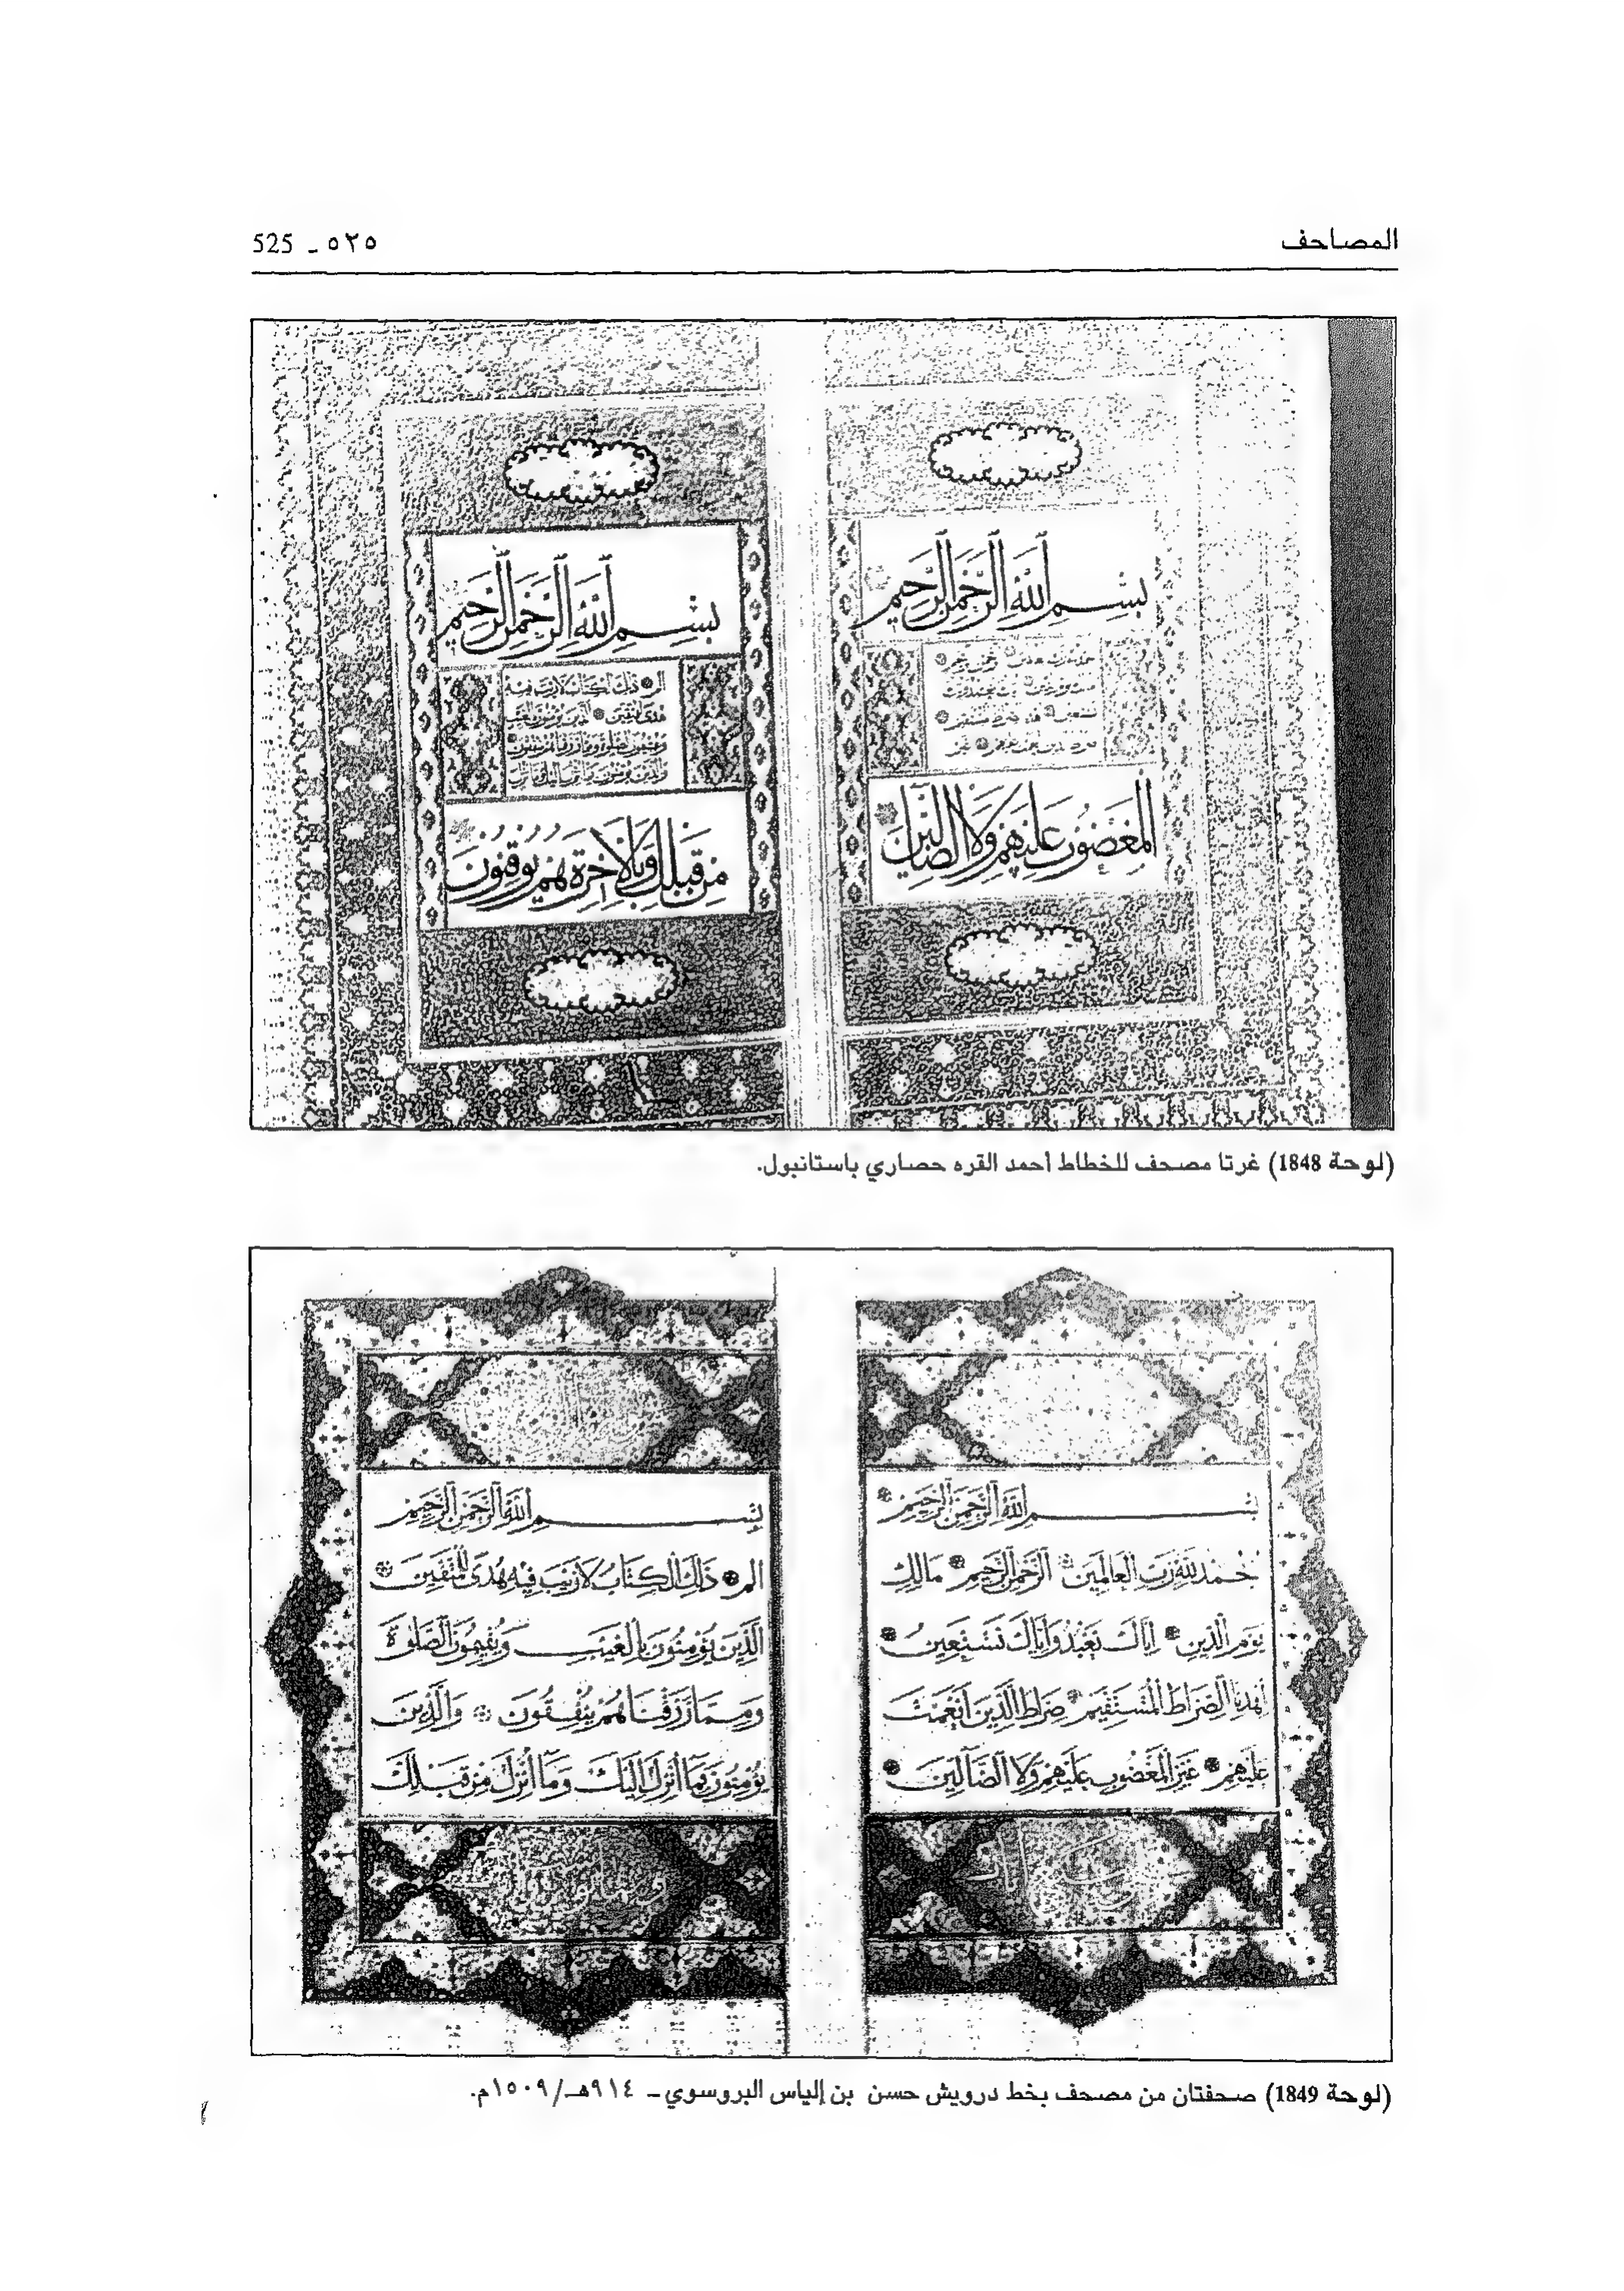 المصاحف
٥٢٥ ـ 525
بِسْمِ اللَّهِ الرَّحْمَنِ الرَّحِيمِ
المغضوب عليهم ولا الضالين
بسم الله الرحمن الرحيم
الم ذلك الكتاب لا ريب فيه
من قبلك وبالآخرة هم يوقنون
(لوحة 1848) غرتا مصحف للخطاط أحمد القره حصاري باستانبول.
بسم الله الرحمن الرحيم
الحمد لله رب العالمين الرحمن الرحيم مالك
يوم الدين إياك نعبد وإياك نستعين
اهدنا الصراط المستقيم صراط الذين أنعمت
عليهم غير المغضوب عليهم ولا الضالين
بسم الله الرحمن الرحيم
الم ذلك الكتاب لا ريب فيه هدى للمتقين
الذين يؤمنون بالغيب ويقيمون الصلوة
ومما رزقناهم ينفقون والذين
يؤمنون بما أنزل إليك وما أنزل من قبلك
(لوحة 1849) صحفتان من مصحف بخط درويش حسن بن إلياس البروسوي ـ ٩١٤هـ/١٥٠٩م.